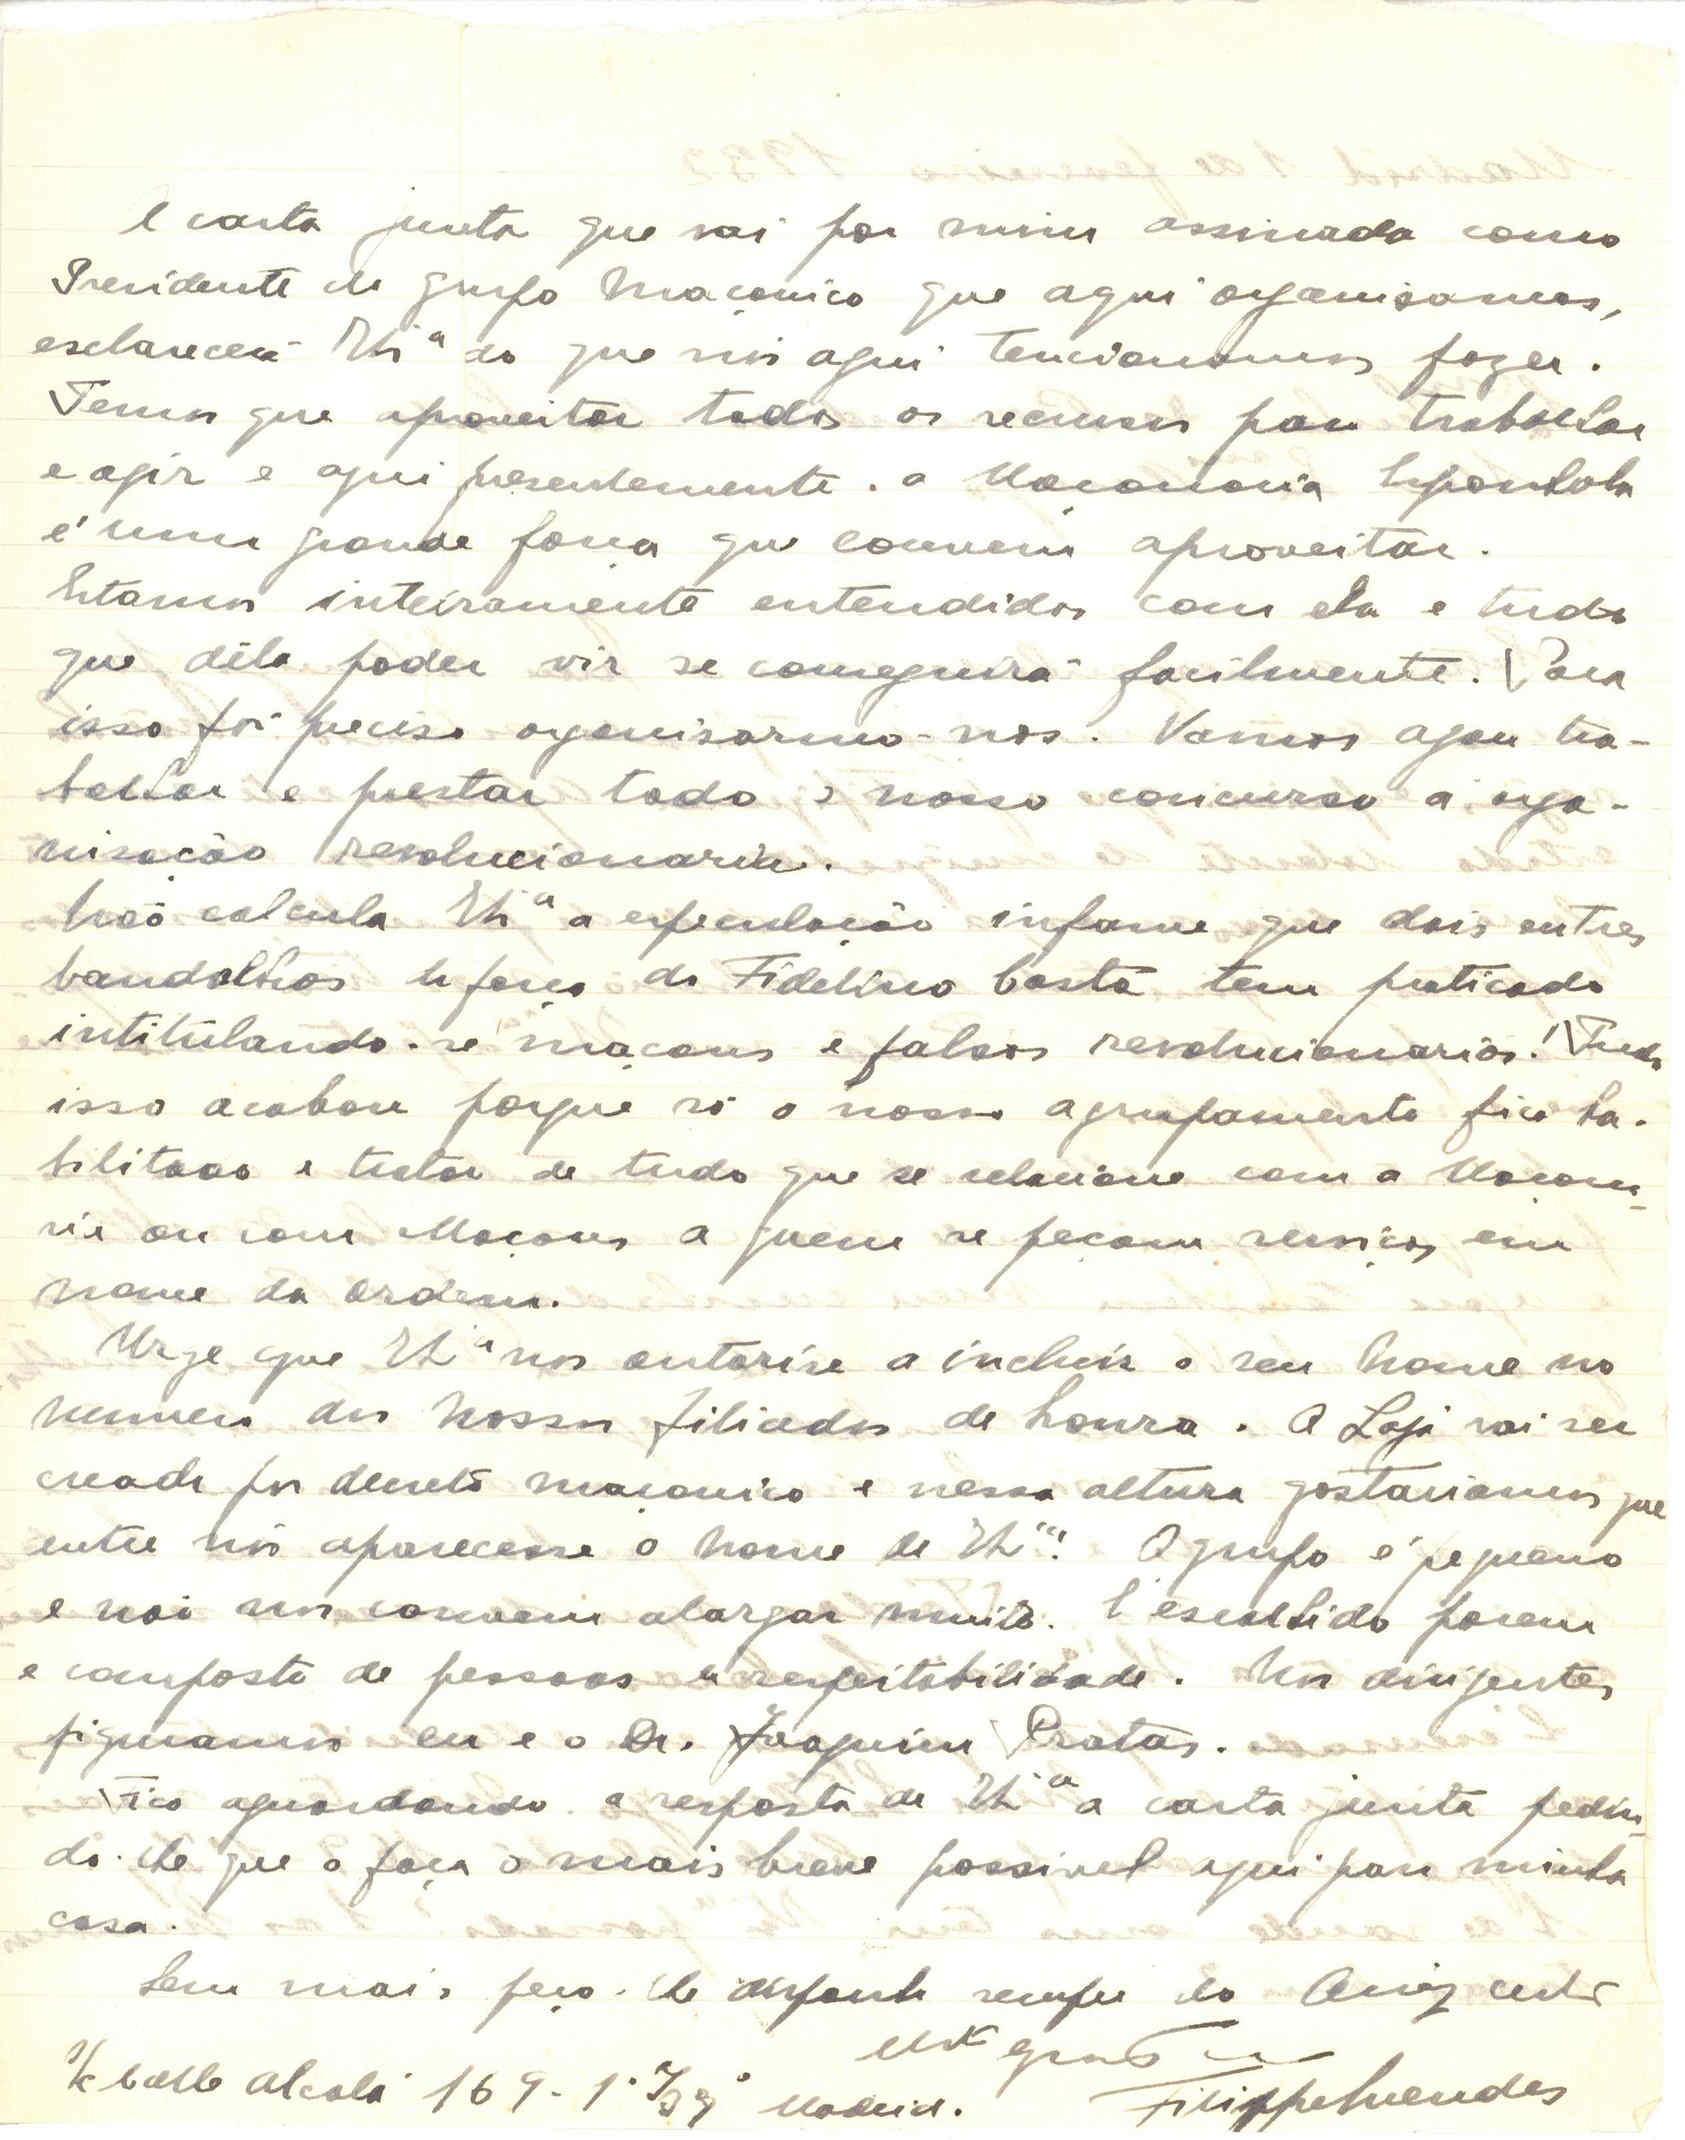 A carta junta que vai por mim assinada como
Presidente do grupo Maçonico que aqui organisamos,
esclarecerá V. Exª do que nós aqui tencionamos fazer.
Temos que aproveitar todos os recursos para trabalhar
e agir e aqui presentemente a Maçonaria Espanhola
é uma grande força que convem aproveitar.
Estamos inteiramente entendidos com ela e tudo
que déla poder vir se conseguirá facilmente. Para
isso foi preciso organisarmo-nos. Vamos agora tra-
balhar e prestar todo o nosso concurso á orga-
nisação revolucionaria.
Não calcula V. Exª a especulação infame que dois ou tres
bandalhos á força do Fidelino Costa tem praticado
intitulando-se maçons e falsos revolucionarios! Tudo
isso acabou porque só o nosso agrupamento fica ha-
bilitado a tratar de tudo que se relacione com a Maçona-
ria ou com Maçons a quem se peçam serviços em
nome da Ordem.
Urge que V. Exª nos autorise a incluir o seu nome no
numero dos nossos filiados de honra. A Loja vai ser
creada por decreto maçonico e nessa altura gostariamos que
entre nós aparecesse o nome de V. Exª. O grupo é pequeno
e não nos convem alargar muito. É escolhido porem
e composto de pessoas de respeitabilidade. Nos dirigentes
figuramos eu e o Dr. Joaquim Pratas.
Fico aguardando a resposta de V. Exª a carta junta pedin-
do-lhe que o faça o mais breve possivel aqui para minha
casa.
Sem mais, peço-lhe disponha sempre do Amigo certo
Mto grato
Filippe Mendes
S/c Calle Alcalá 169-1º Izqº Madrid.